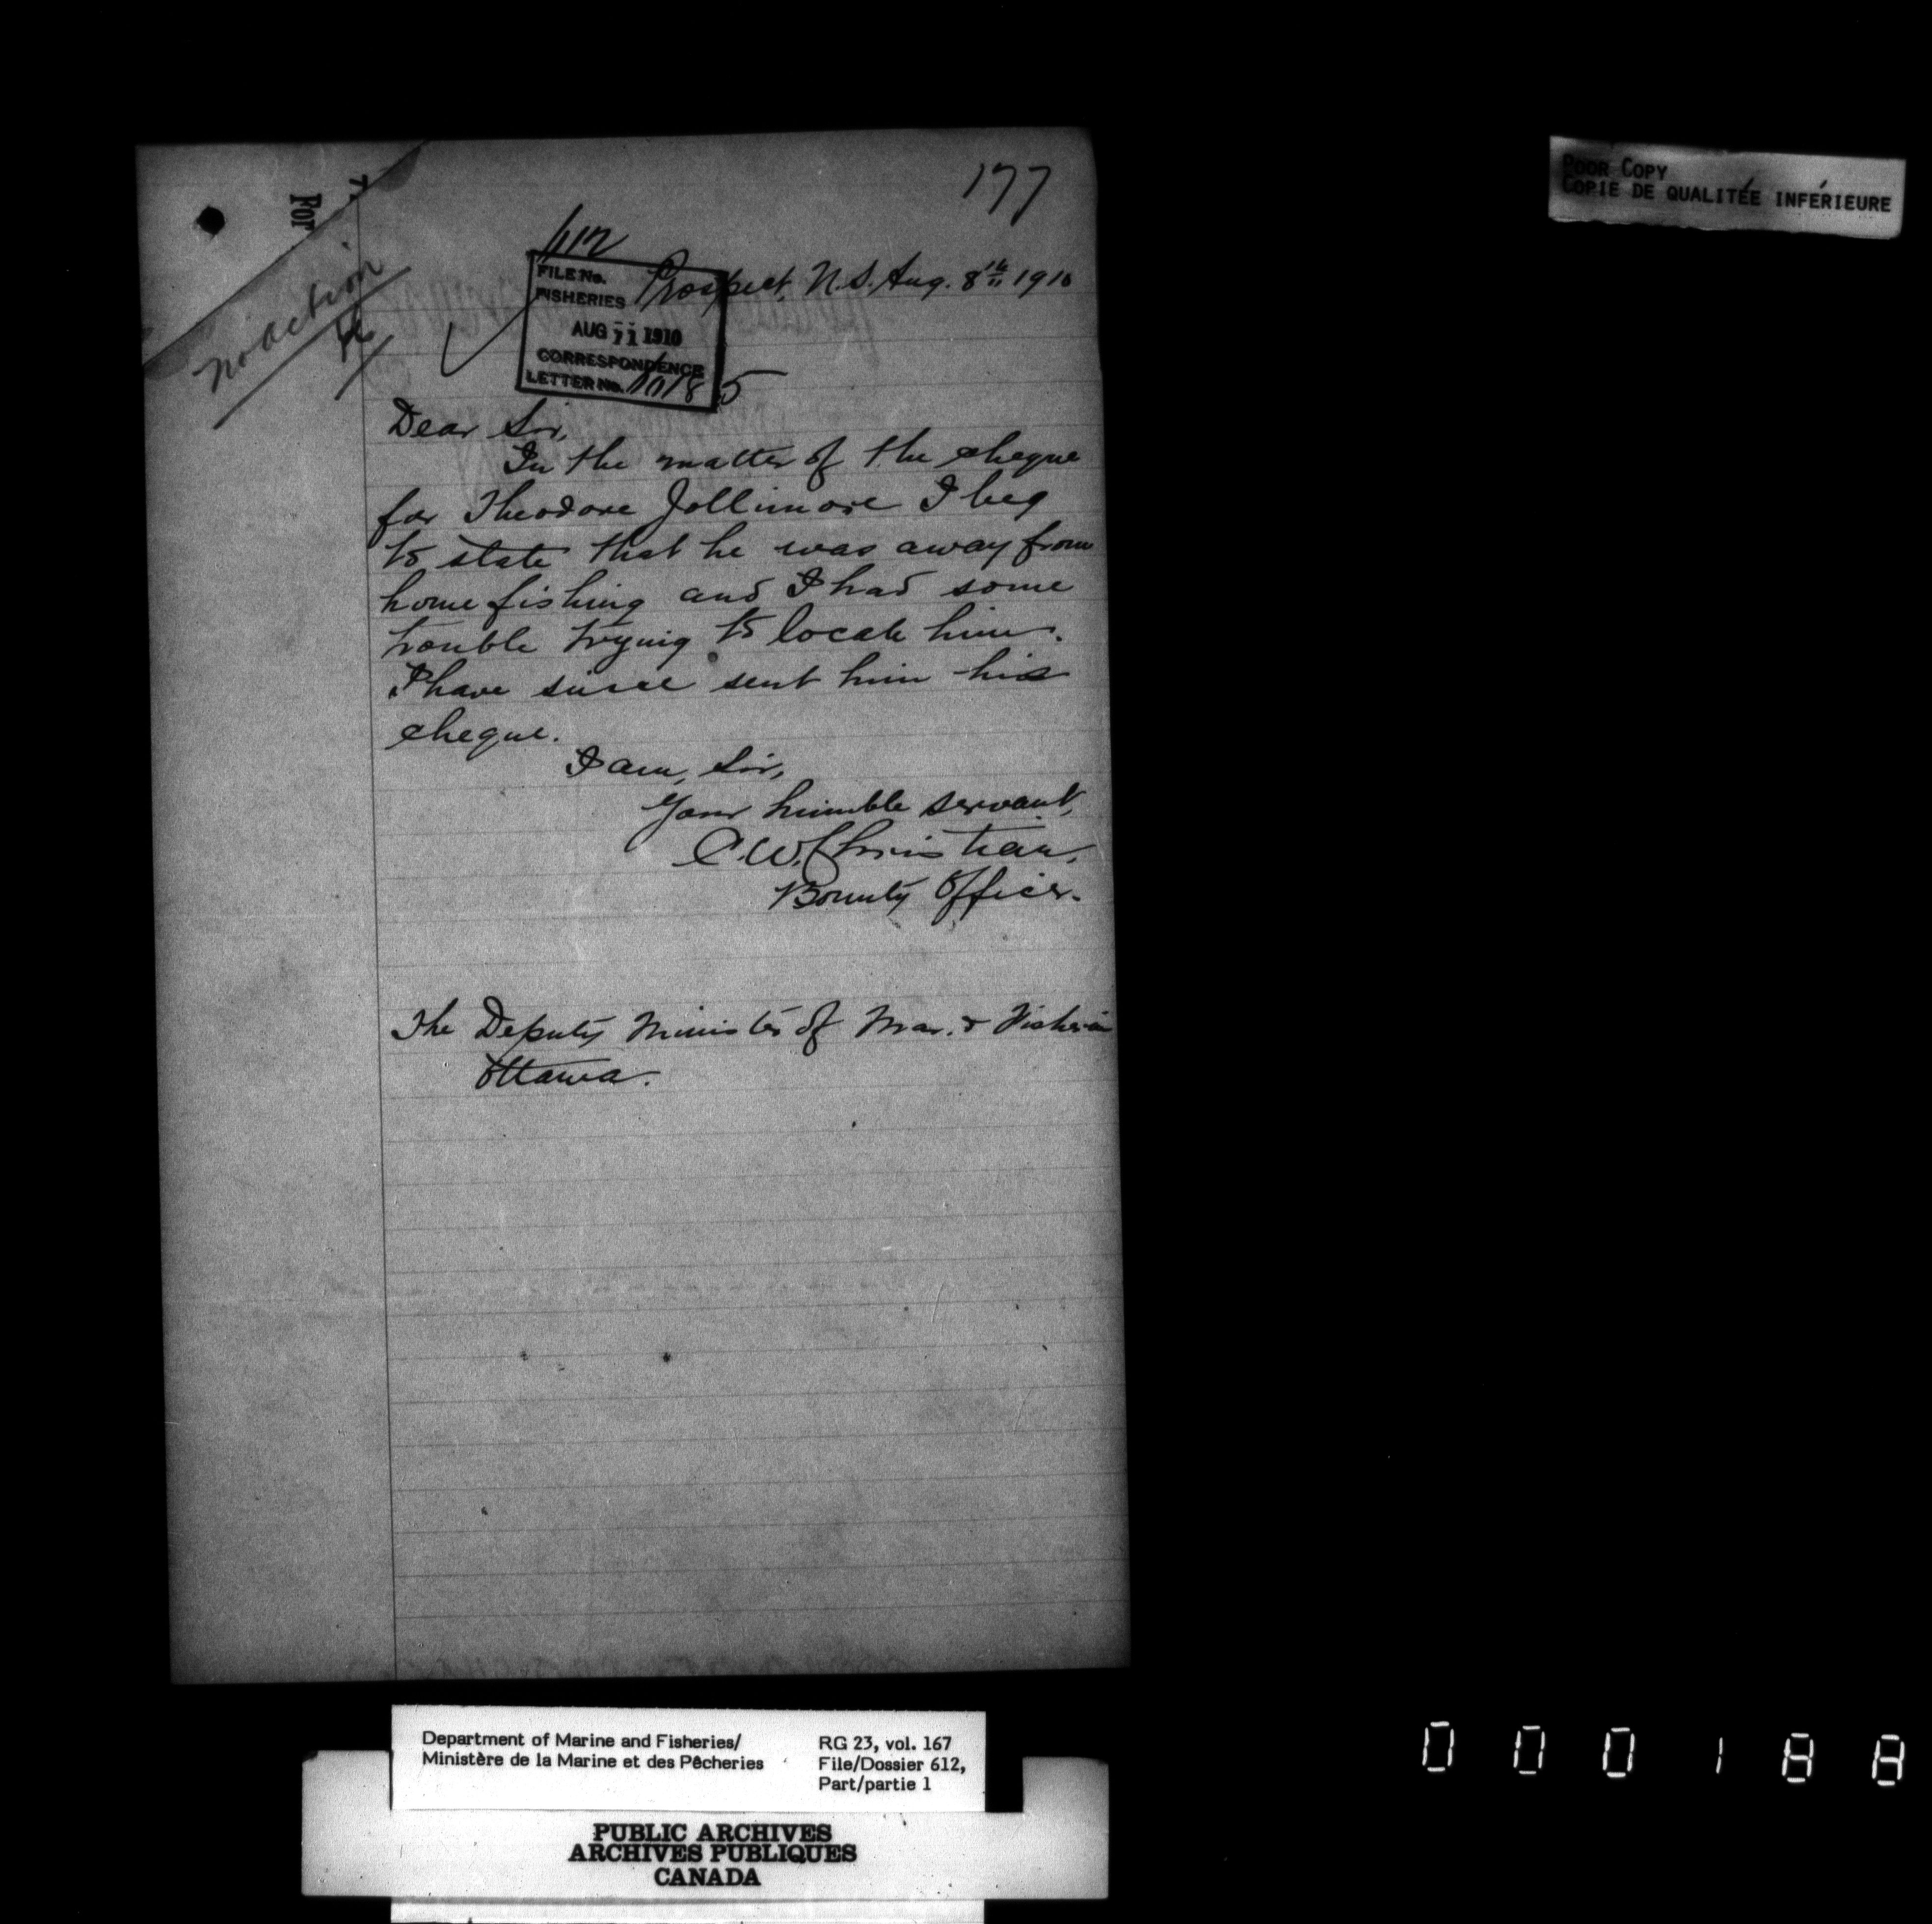 177
POOR COPY
COPIE DE QUALITÉE INFÉRIEURE
For
no action
612
FILE No.
FISHERIES
AUG 11 1910
CORRESPONDENCE
LETTER No.
Prospect, N.S. Aug. 8th 1910
Dear Sir,
In the matter of the cheque
for Theodore Jollimore I beg
to state that he was away from
home fishing and I had some
trouble trying to locate him.
I have since sent him his
cheque.
I am, Sir,
Your humble servant,
C.W. Christian,
Bounty Officer.
The Deputy Minister of Mar. & Fisheries
Ottawa.
Department of Marine and Fisheries/
Ministère de la Marine et des Pêcheries
RG 23, vol. 167
File/Dossier 612,
Part/partie 1
PUBLIC ARCHIVES
ARCHIVES PUBLIQUES
CANADA
000188